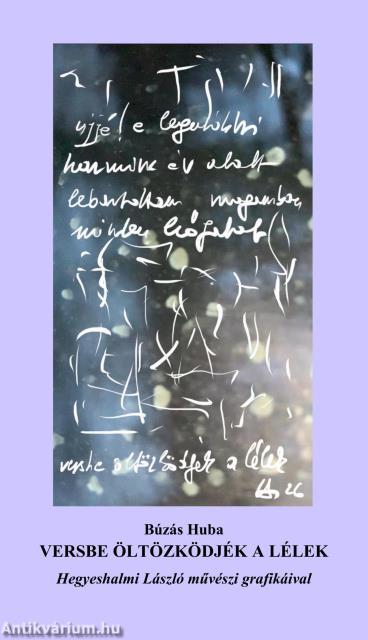 ujjé! e legutóbbi
harminc év alatt
lebontottam magamban
minden
versbe öltözködjék a lélek
26
Búzás Huba
VERSBE ÖLTÖZKÖDJÉK A LÉLEK
Hegyeshalmi László művészi grafikáival
Antikvárium.hu